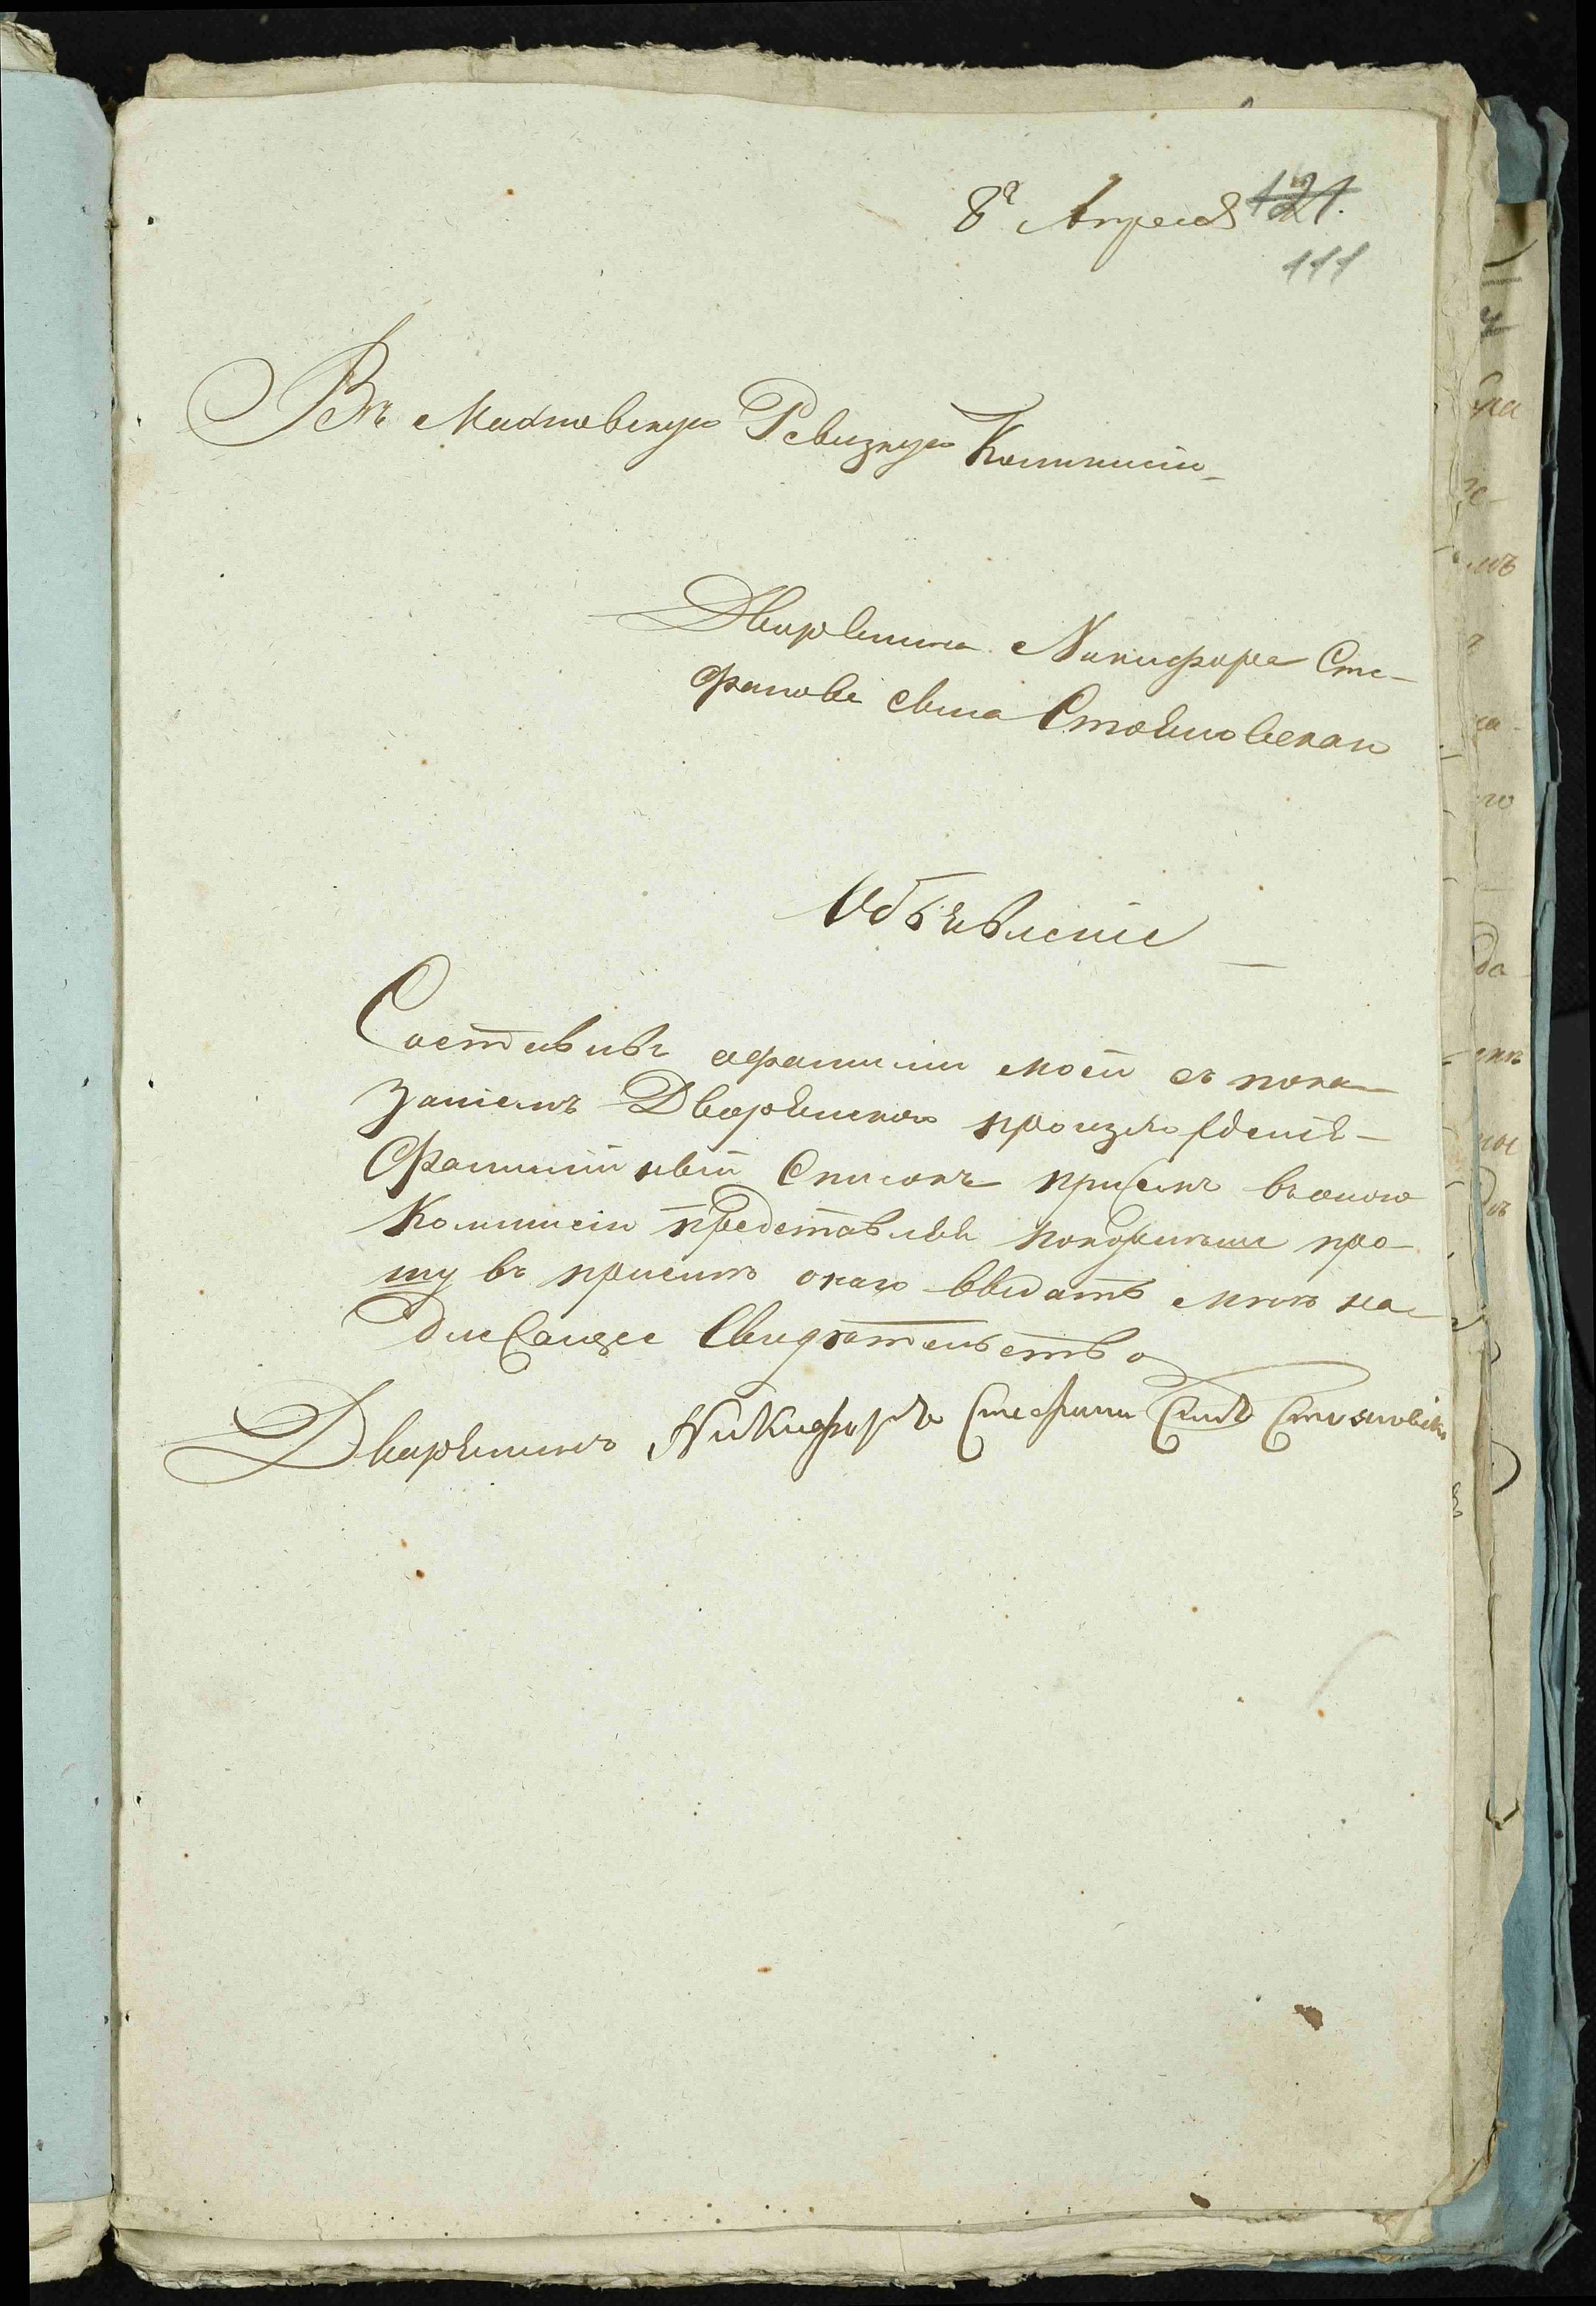 8го Апреля 121.
111
Въ Махновскую Ревизкую Коммисію
Дворянина Никифора Сте-
фанова сына Стояновскаго
Объявленіе
Составивъ о фамиліи моей съ пока-
заніемъ Дворянскаго произхожденія
Фамилійный Списокъ при семъ въ оною
Коммисію представляя покорнѣише про-
шу въ пріемѣ онаго выдать мнѣ на-
длежащее Свидѣтельство
Дворянинъ Никифоръ Стефани Синъ Стояновскій